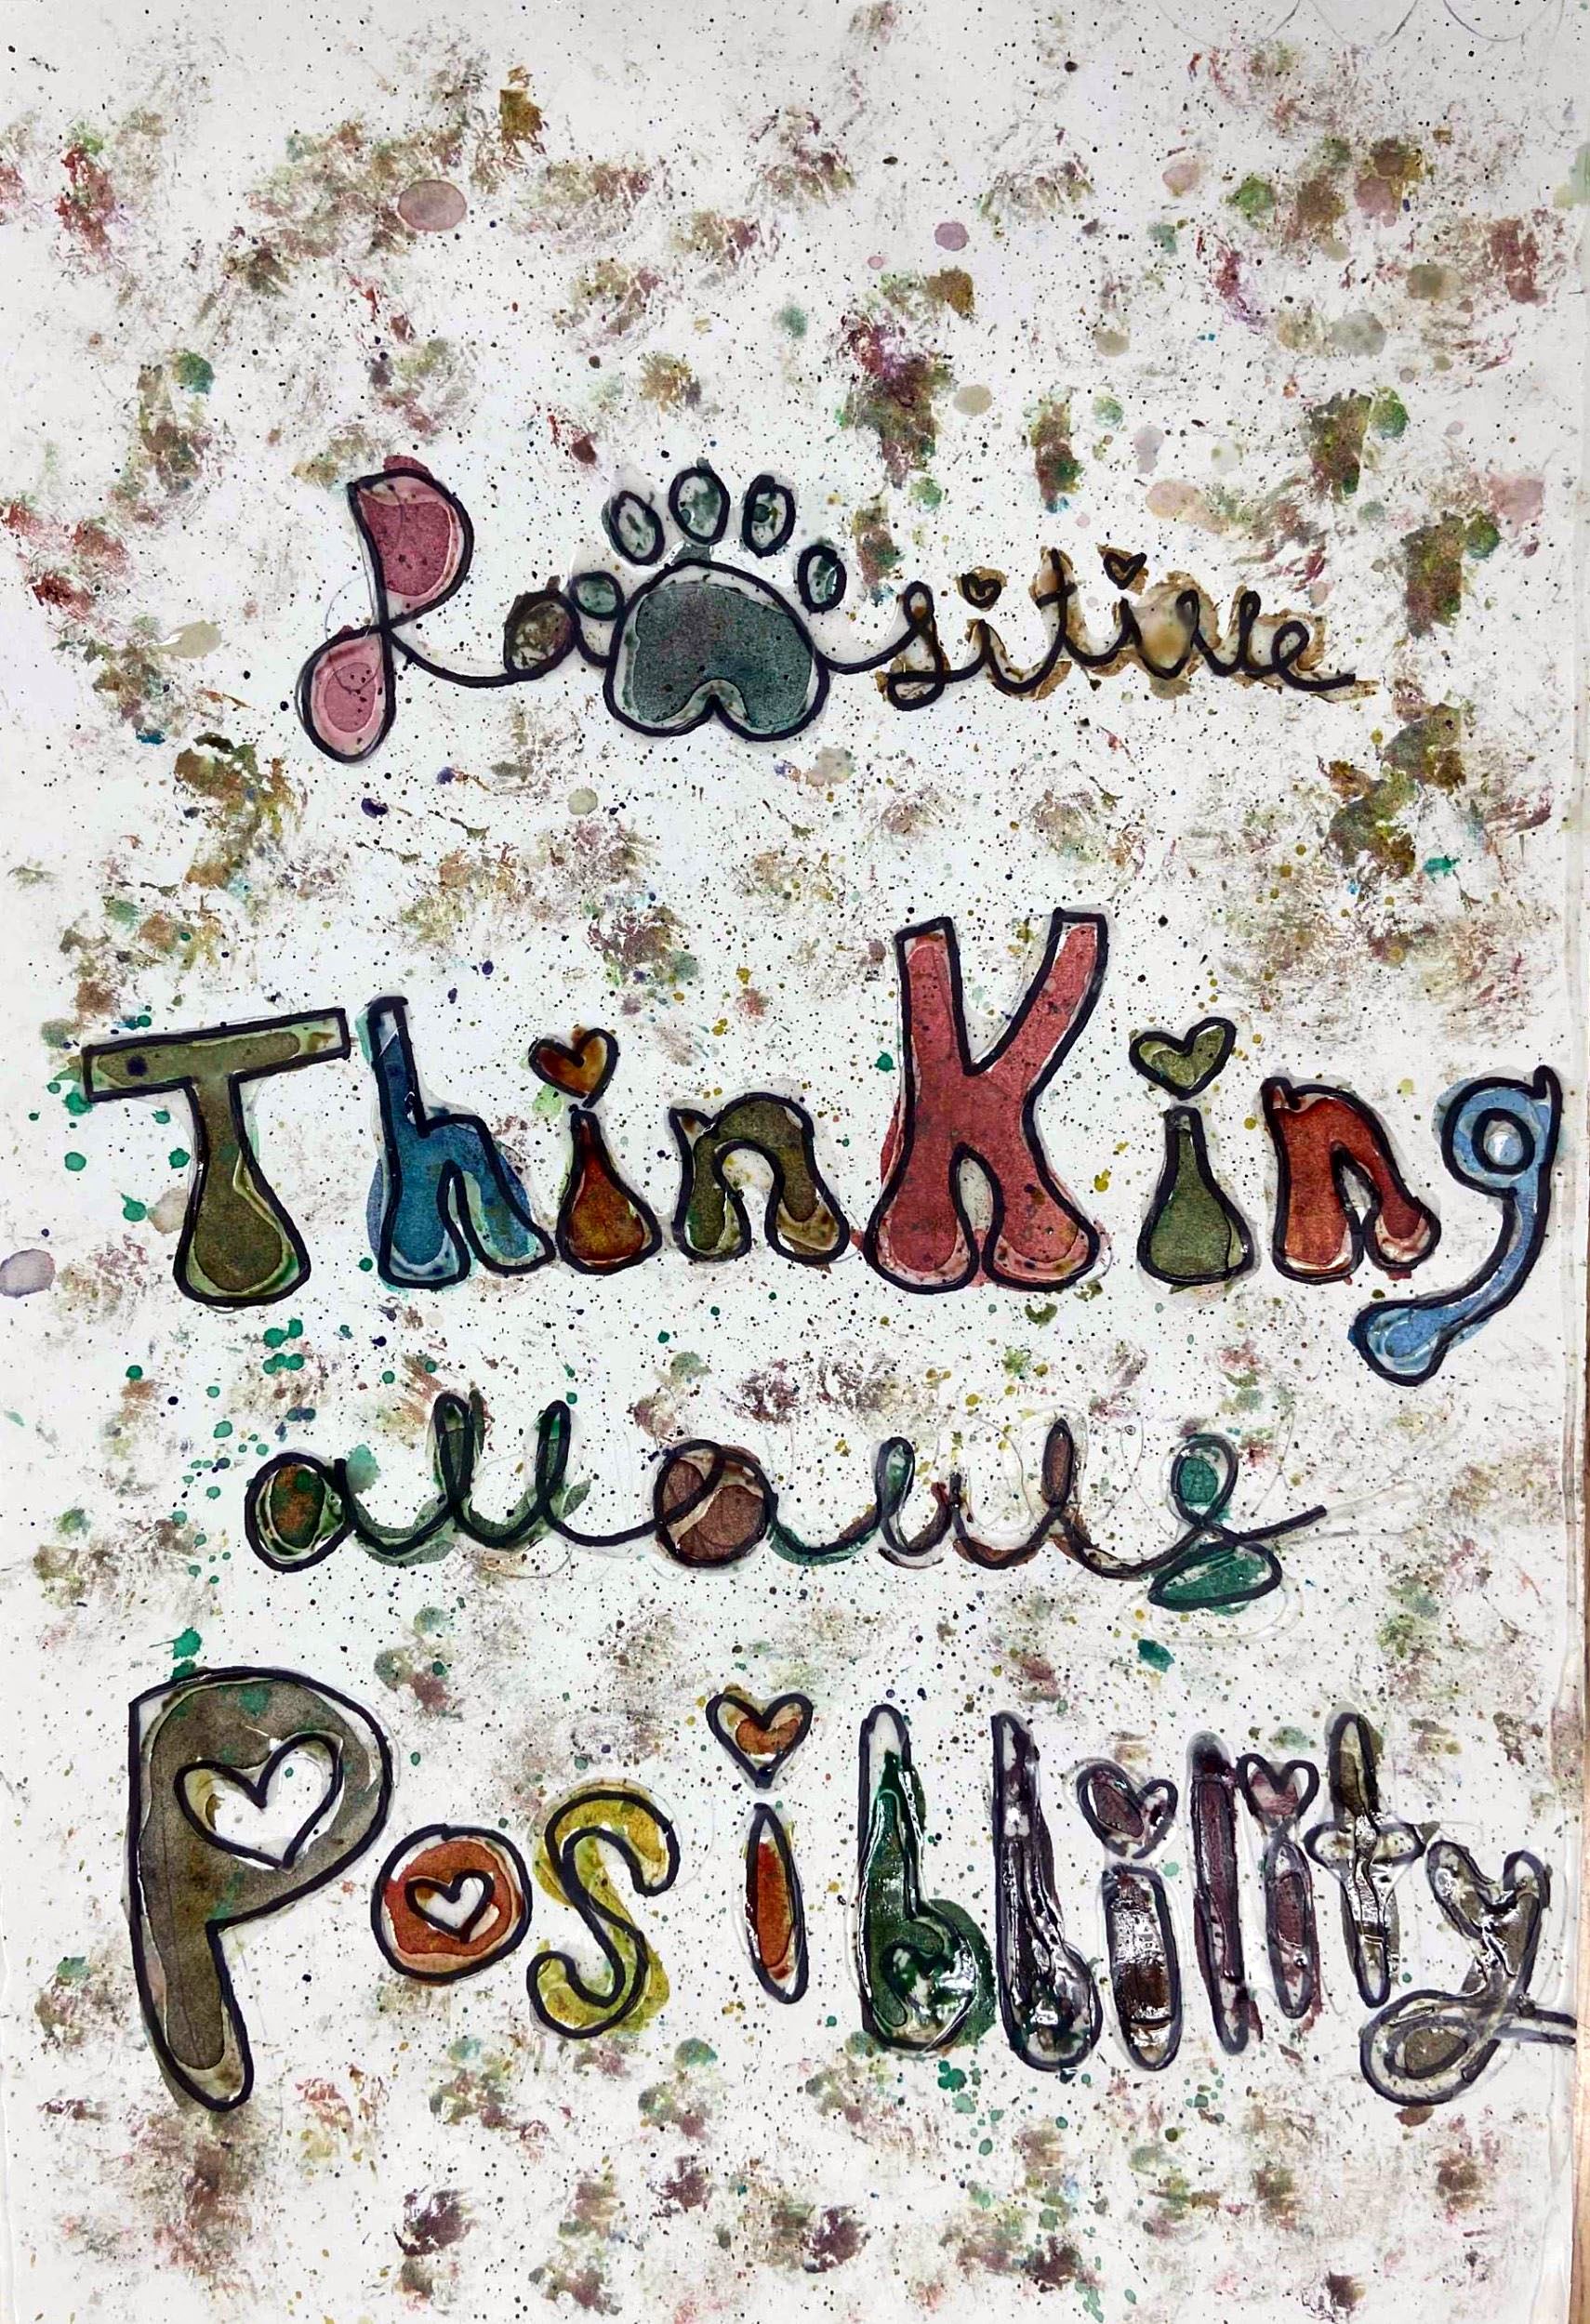 Positive
ThinKing
allows
Posibbility